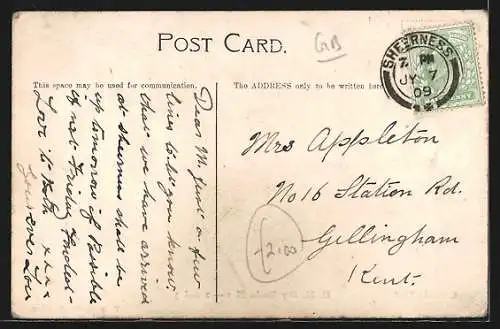 POST CARD.
GB
This space may be used for communication.
The ADDRESS only to be written here
SHEERNESS
PM
JY 7
09
Dear M Just a few
lines to let you know
that we have arrived
at Sheerness shall be
up tomorrow if Possible
if not Friday
Love to both xxx
Your ever Lou
Mrs Appleton
No 16 Station Rd.
Gillingham
Kent.
2.00